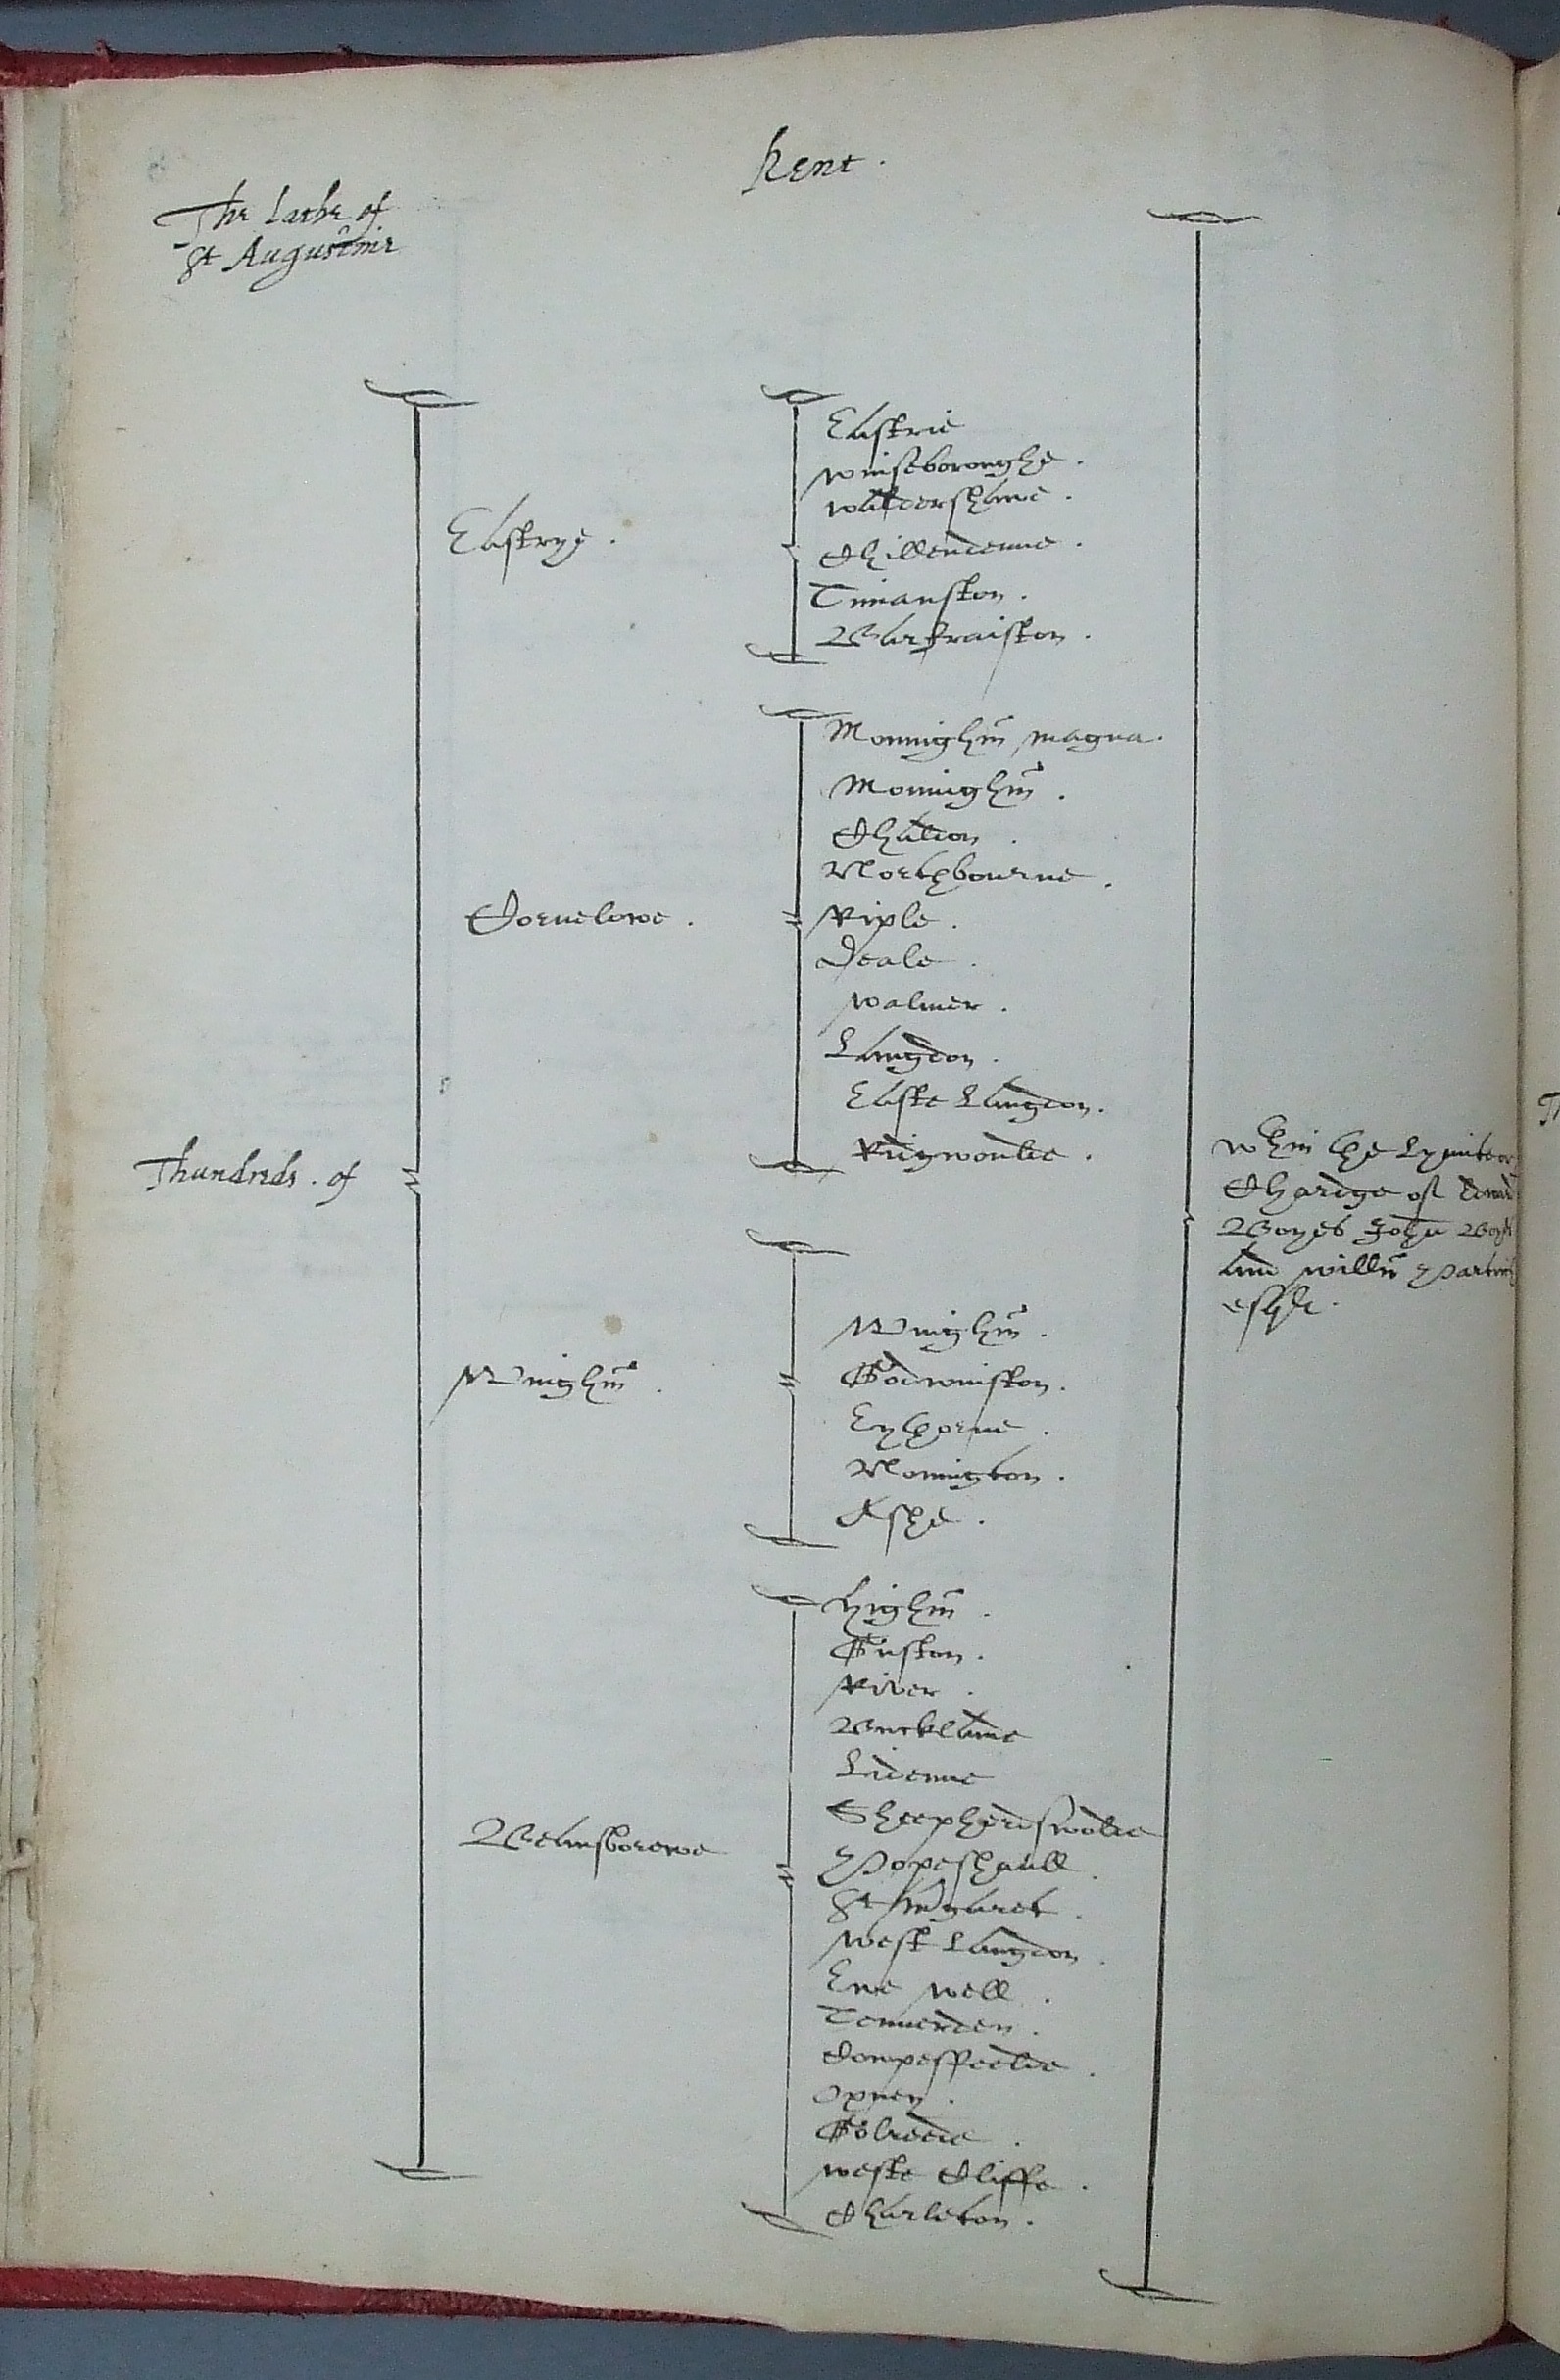 Kent.
The Lathe of
St Augustine
Thundreds. of
Eastrye.
Eastrie
Winseboroughe.
Waldershare.
Chillendenne.
Timanston.
Barfraiston.
Cornelowe.
Monnighm magna.
Monnighm.
Shaldon.
Northbourne.
Riple.
Deale.
Walmer.
Langdon.
Easte Langdon.
Ridgwoulde.
Winghm.
Winghm.
Godwinston.
Eythorne.
Nonington.
Ashe.
Beausborowe
highm.
Guston.
River.
Buckland
Lidenne
Sheepherdswolde
Popeshaull.
St Mrgaret.
West Langdon.
Ewe well.
Temerden.
Compesfeelde.
Opney.
Colredd.
Weste Cliffe.
Charleton.
Wthin the Lymited
Chardge of
Boyes John Boys
and Willm
esqr.